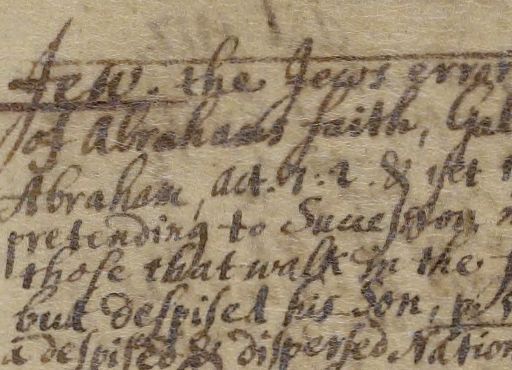 Jew. the Jews erra
of Abrahams faith, Gal
Abraham, act. 7. 2. & yet
pretending to Succession
those that walk in the
but despised his Son,
a despised & dispersed Nation